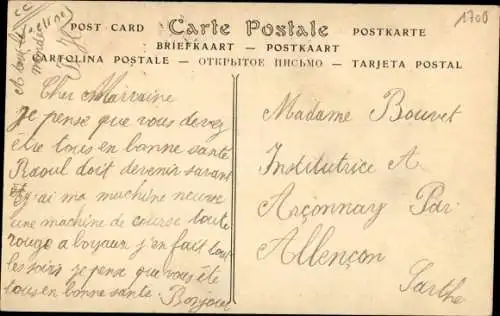 1708
POST CARD Carte Postale POSTKARTE
BRIEFKAART - POSTKAART
CARTOLINA POSTALE - ОТКРЫТОЕ ПИСЬМО - TARJETA POSTAL
Cher Marraine
je pense que vous devez
être tous en bonne santé
Raoul doit devenir savant
j'ai ma machine neuve
une machine de course toute
rouge a boyaux j'en fait tout
les soirs je pense que vous été
tous en bonne santé. Bonjour
Madame Bouvet
Institutrice A
Arçonnay Par
Allençon
Sarthe